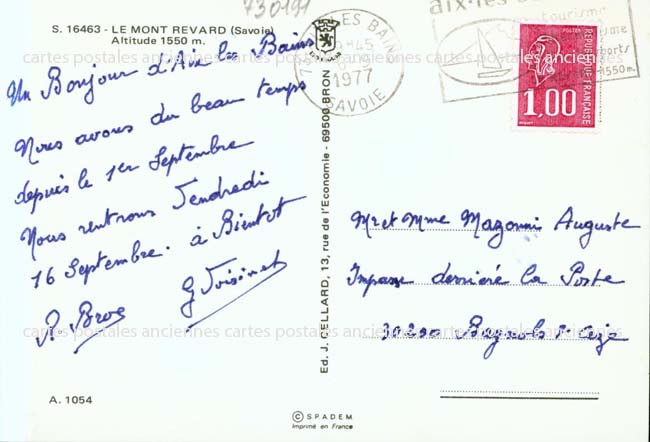 730191
S. 16463 - LE MONT REVARD (Savoie)
Altitude 1550 m.
Un Bonjour d'Aix les Bains
Nous avons du beau temps
depuis le 1er Septembre
Nous rentrons Vendredi
16 Septembre. à Bientôt
R. Broc G Voisinet
A. 1054
Ed. J. CELLARD, 13, rue de l'Economie - 69500 BRON
© S.P.A.D.E.M.
Imprimé en France
LES BAINS
1977
SAVOIE
aix-les
tourisme
1550m.
POSTES
1,00
REPUBLIQUE FRANÇAISE
Mr et Mme Mazonni Auguste
Impasse derrière la Poste
30200 Bagnols s/ ceze
cartes postales anciennes cartes postales anciennes cartes postales anciennes
cartes postales anciennes cartes postales anciennes cartes postales anciennes